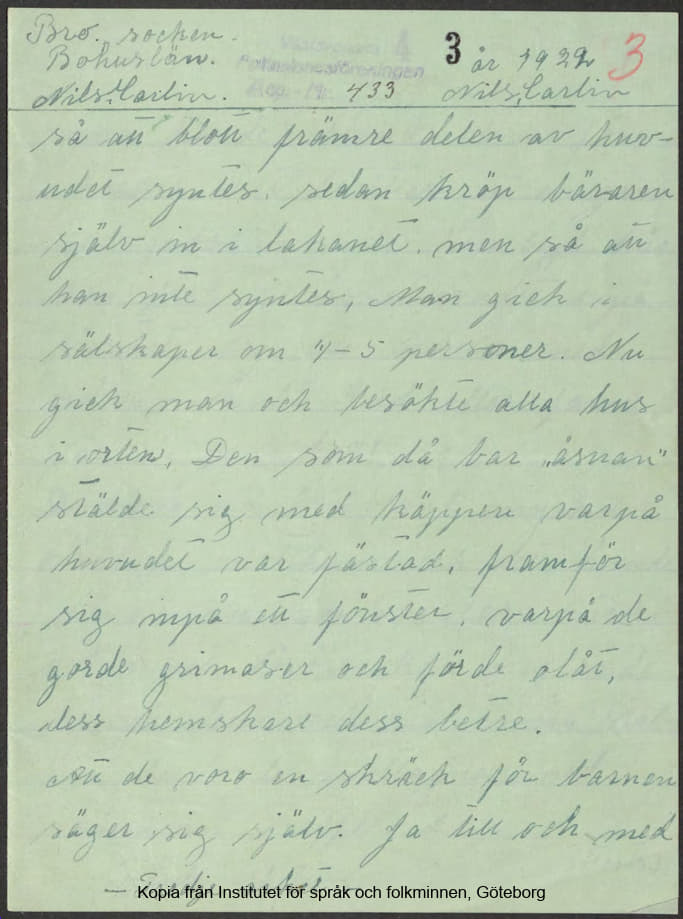 Bro. socken. 3 3
Bohuslän. Folkminnesföreningen år 1929
Nils Carlin. Acc. Nr. 433 Nils Carlin
så att blott främre delen av huv-
udet syntes. sedan kröp bäraren
själv in i lakanet. men så att
han inte syntes, Man gick i
sälskaper om 4-5 personer. Nu
gick man och besökte alla hus
i orten. Den som då bar "åsnan"
stälde sig med käppen varpå
huvudet var fästad. framför
sig inpå ett fönster. varpå de
gorde grimaser och förde olåt,
dess hemskare dess betre.
Att de voro en skräck för barnen
säger sig själv. Ja till och med
Kopia från Institutet för språk och folkminnen, Göteborg